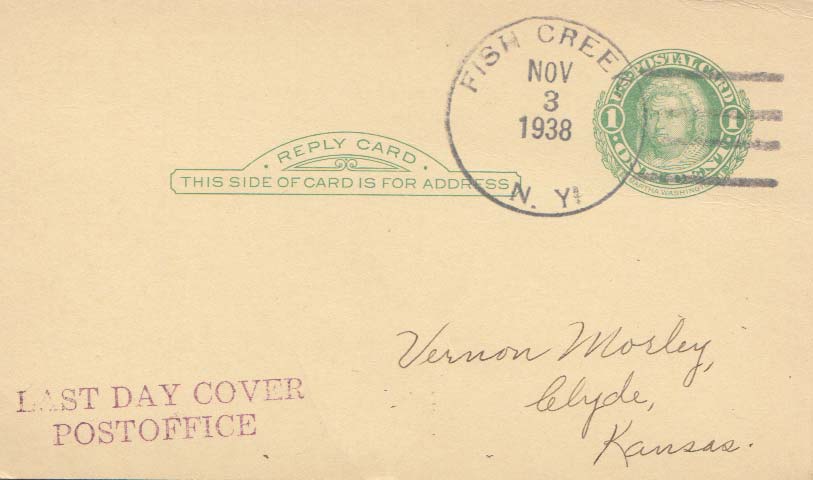 FISH CREE
NOV
3
1938
N. Y.
U.S. POSTAL CARD
1 1
ONE CENT
MARTHA WASHINGTON
· REPLY CARD ·
THIS SIDE OF CARD IS FOR ADDRESS
Vernon Morley,
Clyde,
Kansas.
LAST DAY COVER
POSTOFFICE